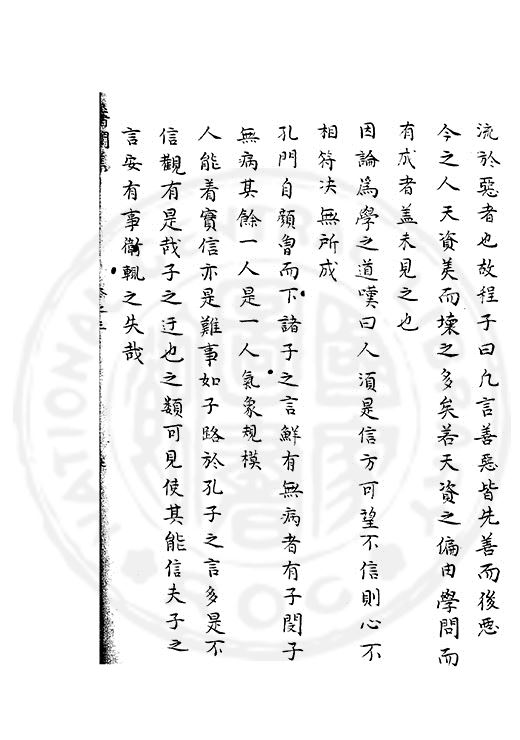 流於惡者也故程子曰凡言善惡皆先善而後惡
今之人天資美而壞之多矣若天資之偏由學問而
有成者盖未見之也
因論爲學之道嘆曰人湏是信方可望不信則心不
相符决無所成
孔門自顔曾而下諸子之言鮮有無病者有子閔子
無病其餘一人是一人氣象規模
人能着實信亦是難事如子路於孔子之言多是不
信觀有是哉子之迂也之類可見使其能信夫子之
言安有事衞輒之失哉